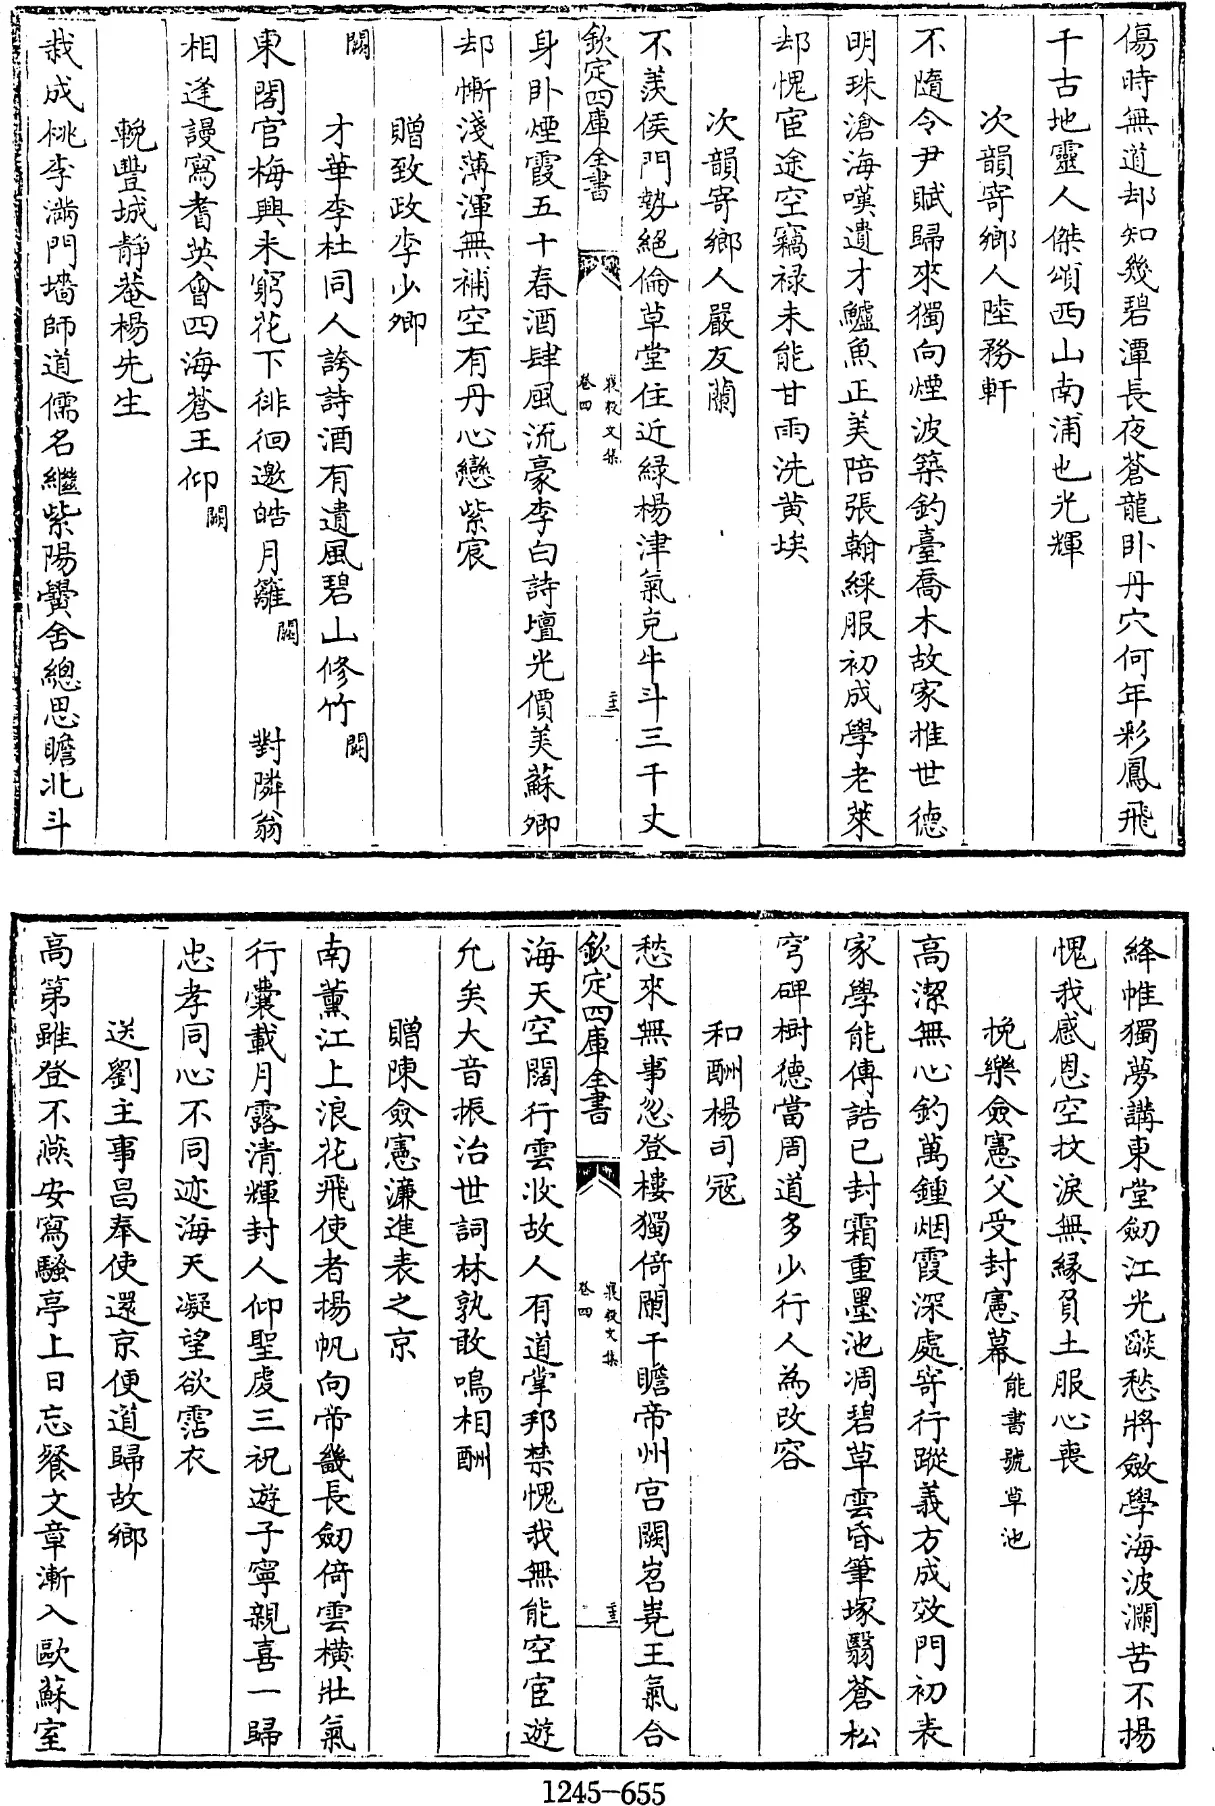 傷時無道却知幾碧潭長夜蒼龍卧丹穴何年彩鳳飛
千古地靈人傑頌西山南浦也光輝
次韻寄鄉人陸務軒
不隨令尹賦歸來獨向煙波築釣臺喬木故家推世德
明珠滄海嘆遺才鱸魚正美陪張翰綵服初成學老萊
却愧宦途空竊禄未能甘雨洗黄埃
次韻寄鄉人嚴友蘭
不羡侯門勢絕倫草堂住近緑楊津氣克牛斗三千丈
欽定四庫全書
卷四
襄毅文集
身卧煙霞五十春酒肆風流豪李白詩壇光價美蘇卿
却慚淺薄渾無補空有丹心戀紫宸
贈致政李少卿
闕 才華李杜同人誇詩酒有遺風碧山修竹闕
東閣官梅興未窮花下徘徊邀皓月籬闕 對隣翁
相逢謾寫耆英會四海蒼王仰闕
輓豐城靜菴楊先生
栽成桃李滿門墻師道儒名繼紫陽黌舍總思瞻北斗
絳帷獨夢講東堂劒江光燄愁將斂學海波瀾苦不揚
愧我感恩空抆淚無縁負土服心喪
挽樂僉憲父受封憲幕能書號草池
高潔無心釣萬鍾烟霞深處寄行蹤義方成效門初表
家學能傳誥已封霜重墨池凋碧草雲昏筆塚翳蒼松
穹碑樹德當周道多少行人為改容
和酬楊司冦
愁來無事忽登樓獨倚闌干瞻帝州宫闕岧嶤王氣合
欽定四庫全書
卷四
襄毅文集
海天空闊行雲收故人有道掌邦禁愧我無能空宦遊
允矣大音振治世詞林孰敢鳴相酬
贈陳僉憲濂進表之京
南薰江上浪花飛使者揚帆向帝畿長劒倚雲横壯氣
行囊載月露清輝封人仰聖處三祝遊子寧親喜一歸
忠孝同心不同迹海天凝望欲霑衣
送劉主事昌奉使還京便道歸故鄉
高第雖登不燕安寫騷亭上日忘餐文章漸入歐蘇室
1245-655